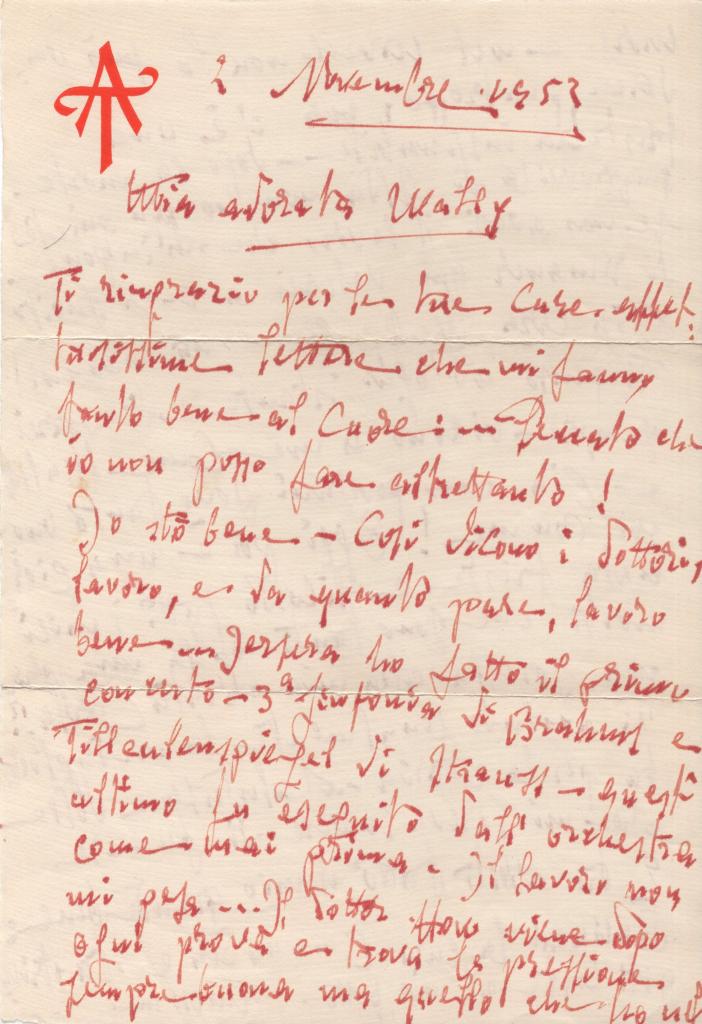 2 Novembre. 1952
Mia adorata Wally
Ti ringrazio per le tue care. affet.
tuosissime lettere che mi fanno
tanto bene al cuore: — Peccato che
io non posso fare altrettanto!
Io stò bene — Così dicono i dottori,
lavoro, e da quanto pare, lavoro
bene — Jersera ho fatto il primo
concerto — 3ª sinfonia di Brahms e
Till eulenspiegel di Strauss — questi
ultimo fu eseguito dall' orchestra
come mai prima — Il lavoro non
mi pesa — Il dottor How viene dopo
ogni prova e trova la pressione
sempre buona ma quello che ho nel